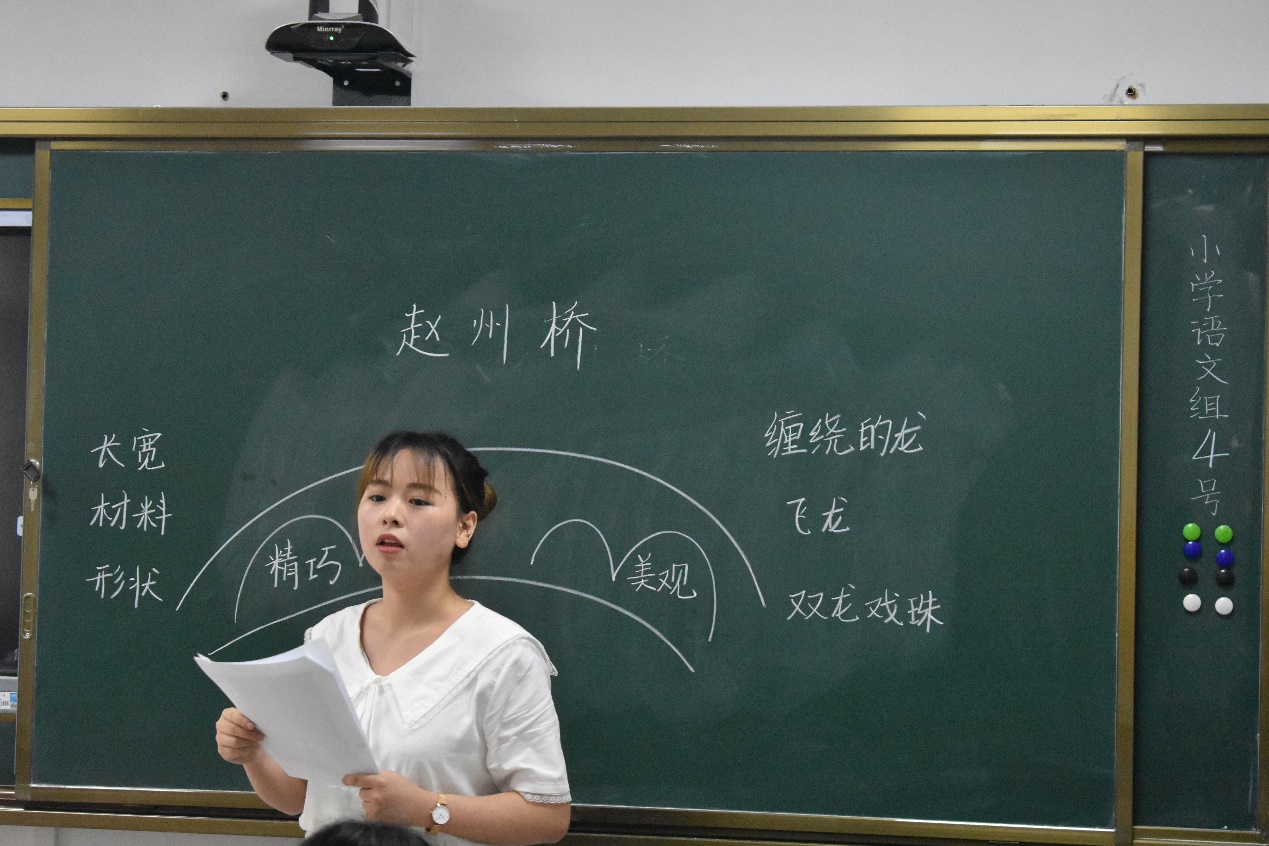 Minrray
赵州桥
长宽
材料
形状
精巧
美观
缠绕的龙
飞龙
双龙戏珠
小学语文组4号